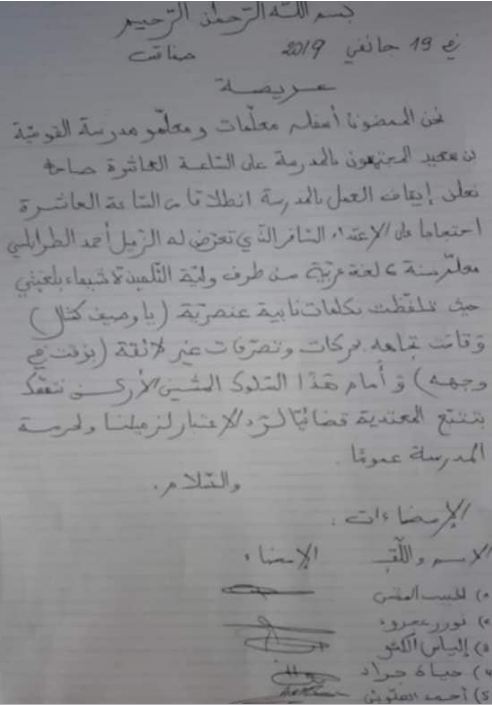 بسم الله الرحمان الرحيم
في 19 جانفي 2019 صفاقس
عريضة
نحن الممضون أسفله معلمات ومعلمو مدرسة القومية
بن سعيد المجتمعون بالمدرسة على الساعة العاشرة صباحا
نعلن إيقاف العمل بالمدرسة انطلاقا من الساعة العاشرة
احتجاجا على الإعتداء السافر الذي تعرض له الزميل أحمد الطرابلسي
معلم سنة 6 لغة عربية من طرف ولية التلميذة شيماء بلغيني
حيث تلفظت بكلمات نابية عنصرية (يا وصيف
وقامت تجاهه بحركات وتصرفات غير لائقة (بزقت في
وجهه) وأمام هذا السلوك المشين نتمسك
بتتبع المعتدية قضائيا لرد الإعتبار لزميلنا ولحرمة
المدرسة عموما.
والسلام.
الإمضاءات:
الاسم واللقب الإمضاء
1) الحبيب
2)
3) إلياس
4) حياة جراد
5) أحمد